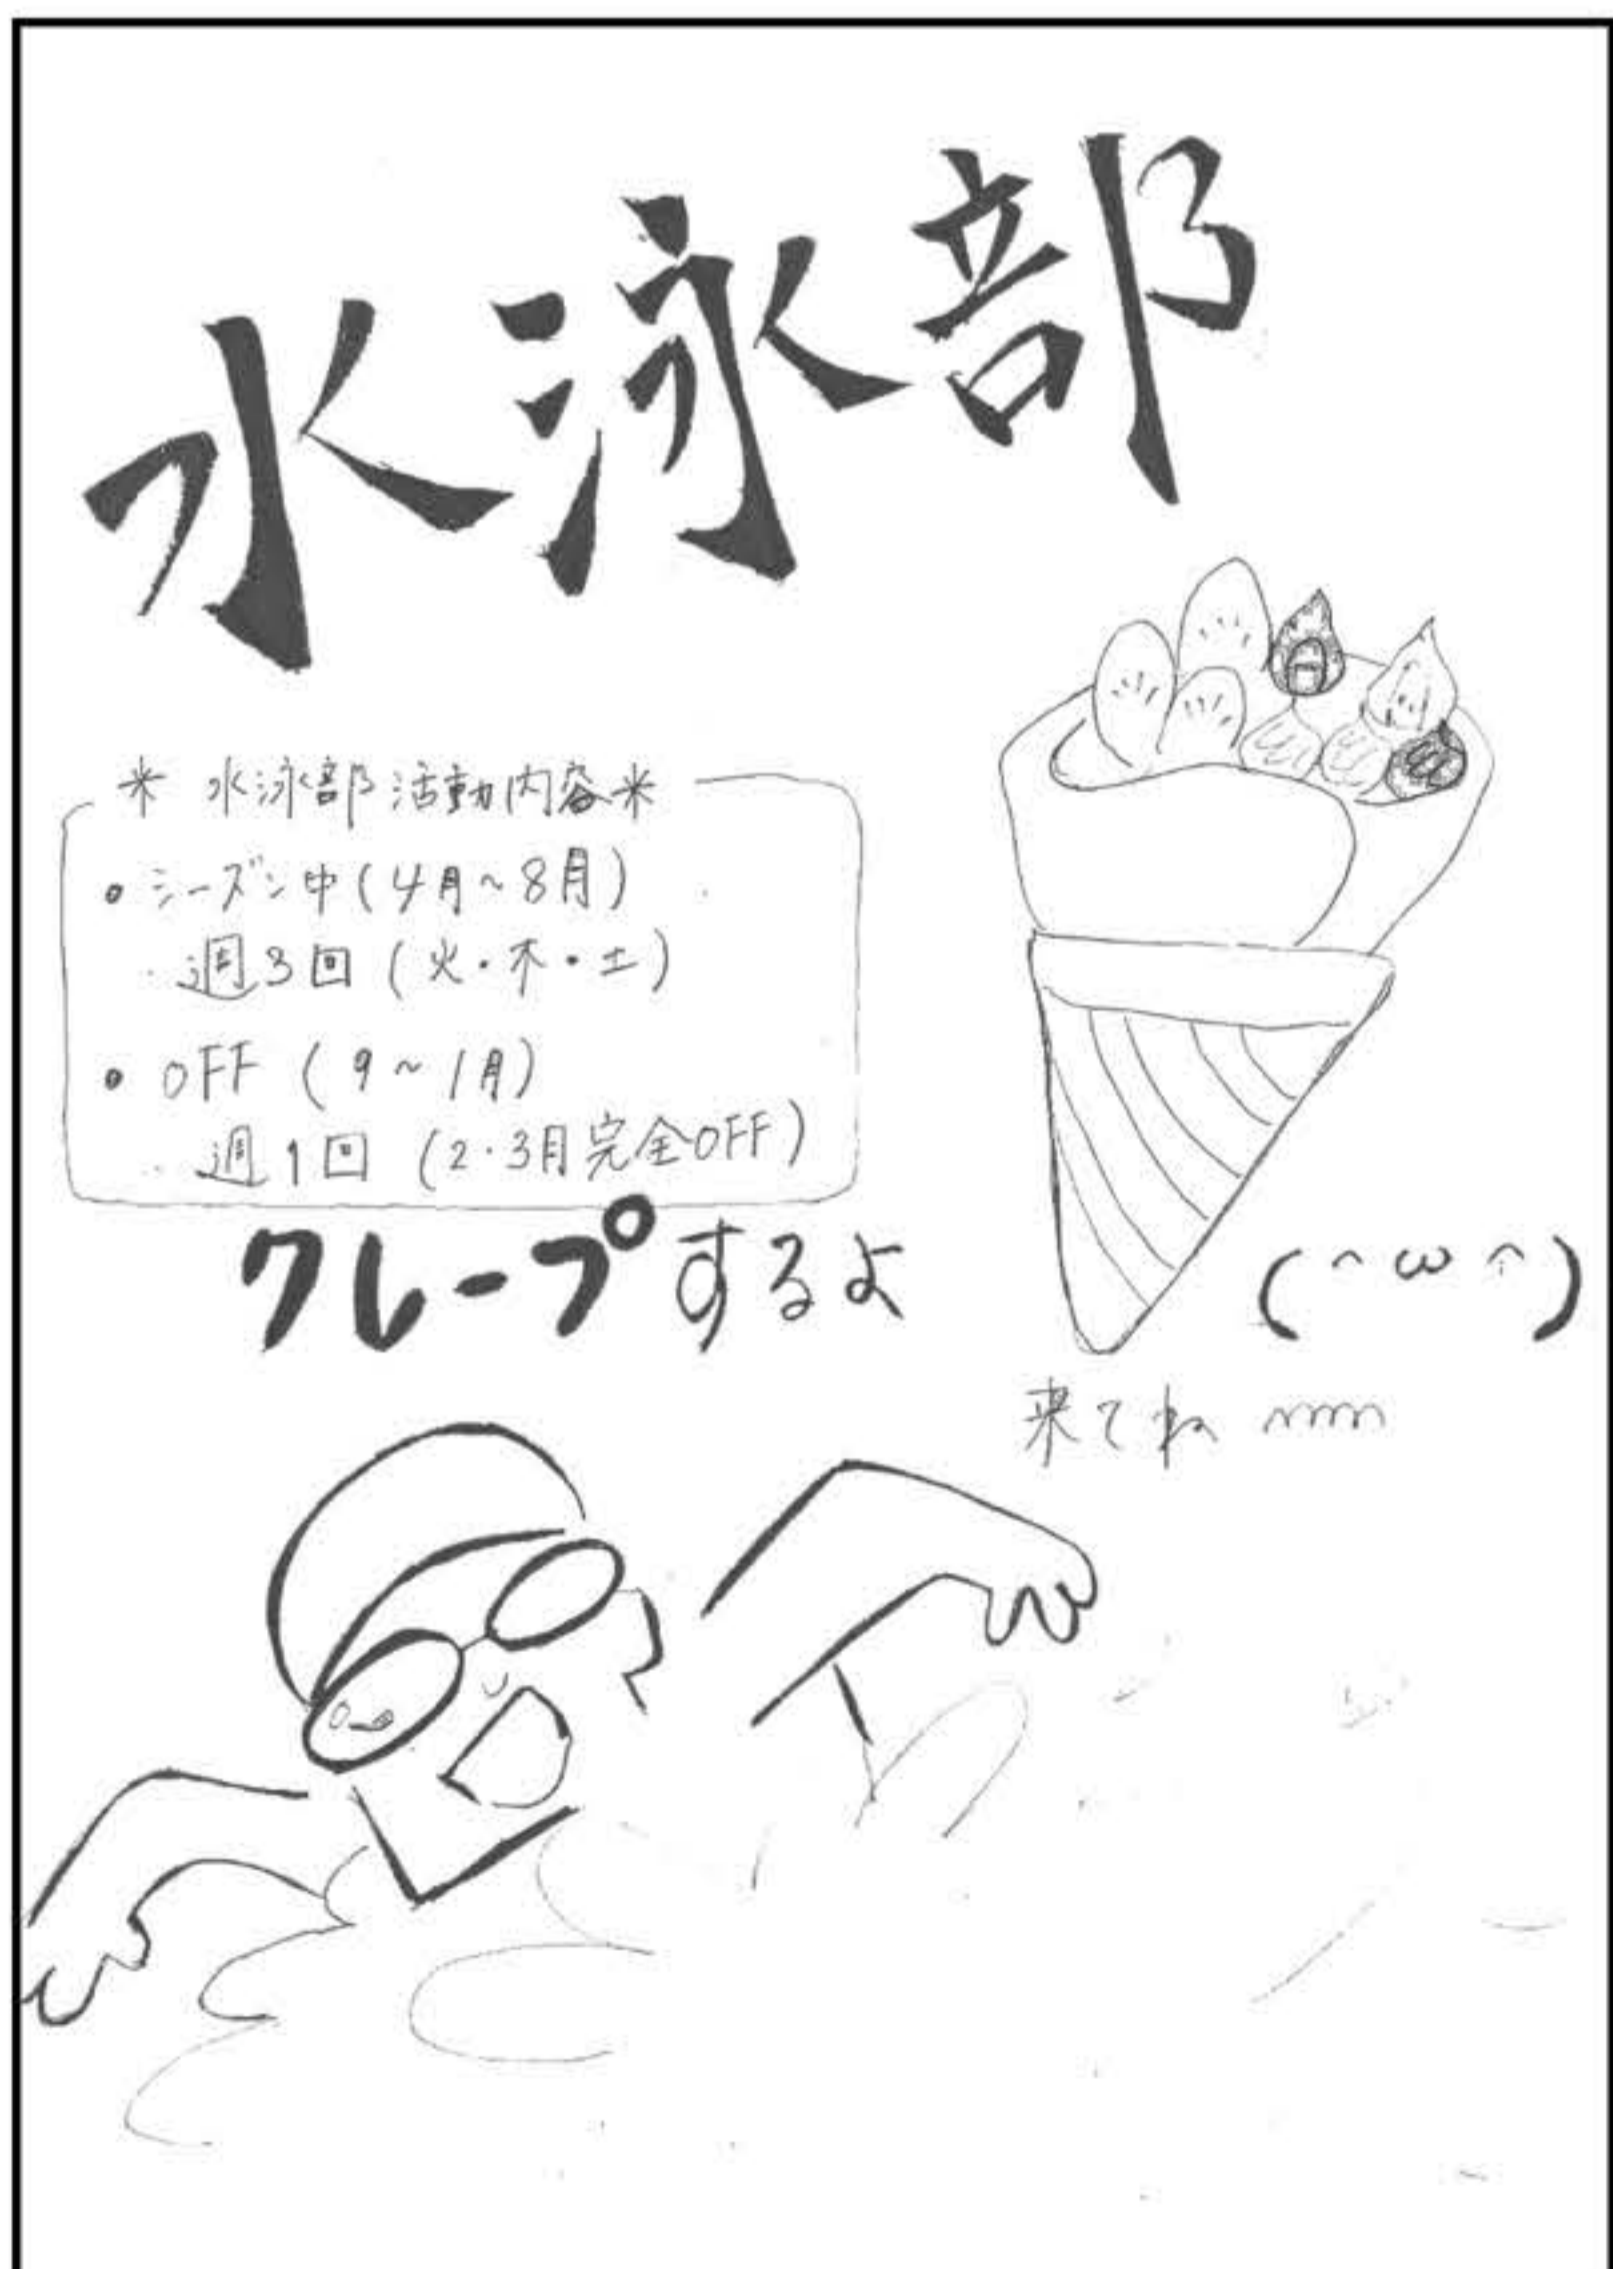 水泳部
* 水泳部活動内容 *
• シーズン中(4月~8月)
週3回(火・木・土)
• OFF (9~1月)
週1回 (2・3月完全OFF)
クレープするよ
(^ω^)
来てね